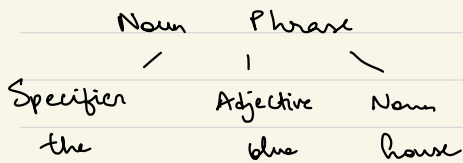 Noun Phrase
Specifier Adjective Noun
the blue house